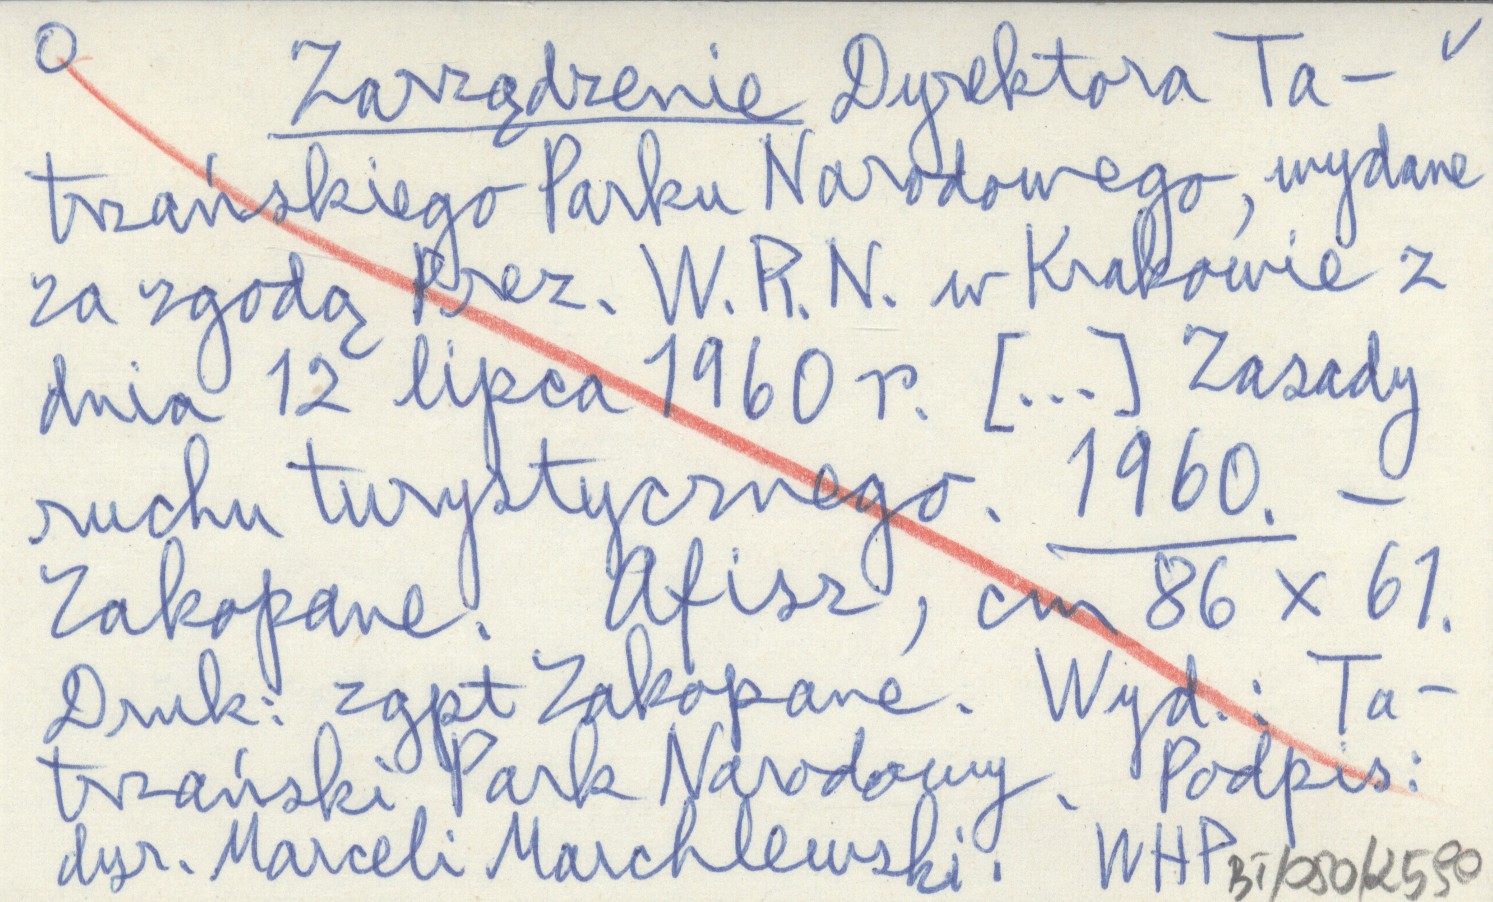 O Zarządzenie Dyrektora Ta-
trzańskiego Parku Narodowego, wydane
za zgodą Prez. W.R.N. w Krakowie z
dnia 12 lipca 1960 r. [...] Zasady
ruchu turystycznego. 1960. -
Zakopane. Afisz, cm 86 x 61.
Druk: zgpt Zakopane. Wyd.: Ta-
trzański Park Narodowy. Podpis:
dyr. Marceli Marchlewski. WHP